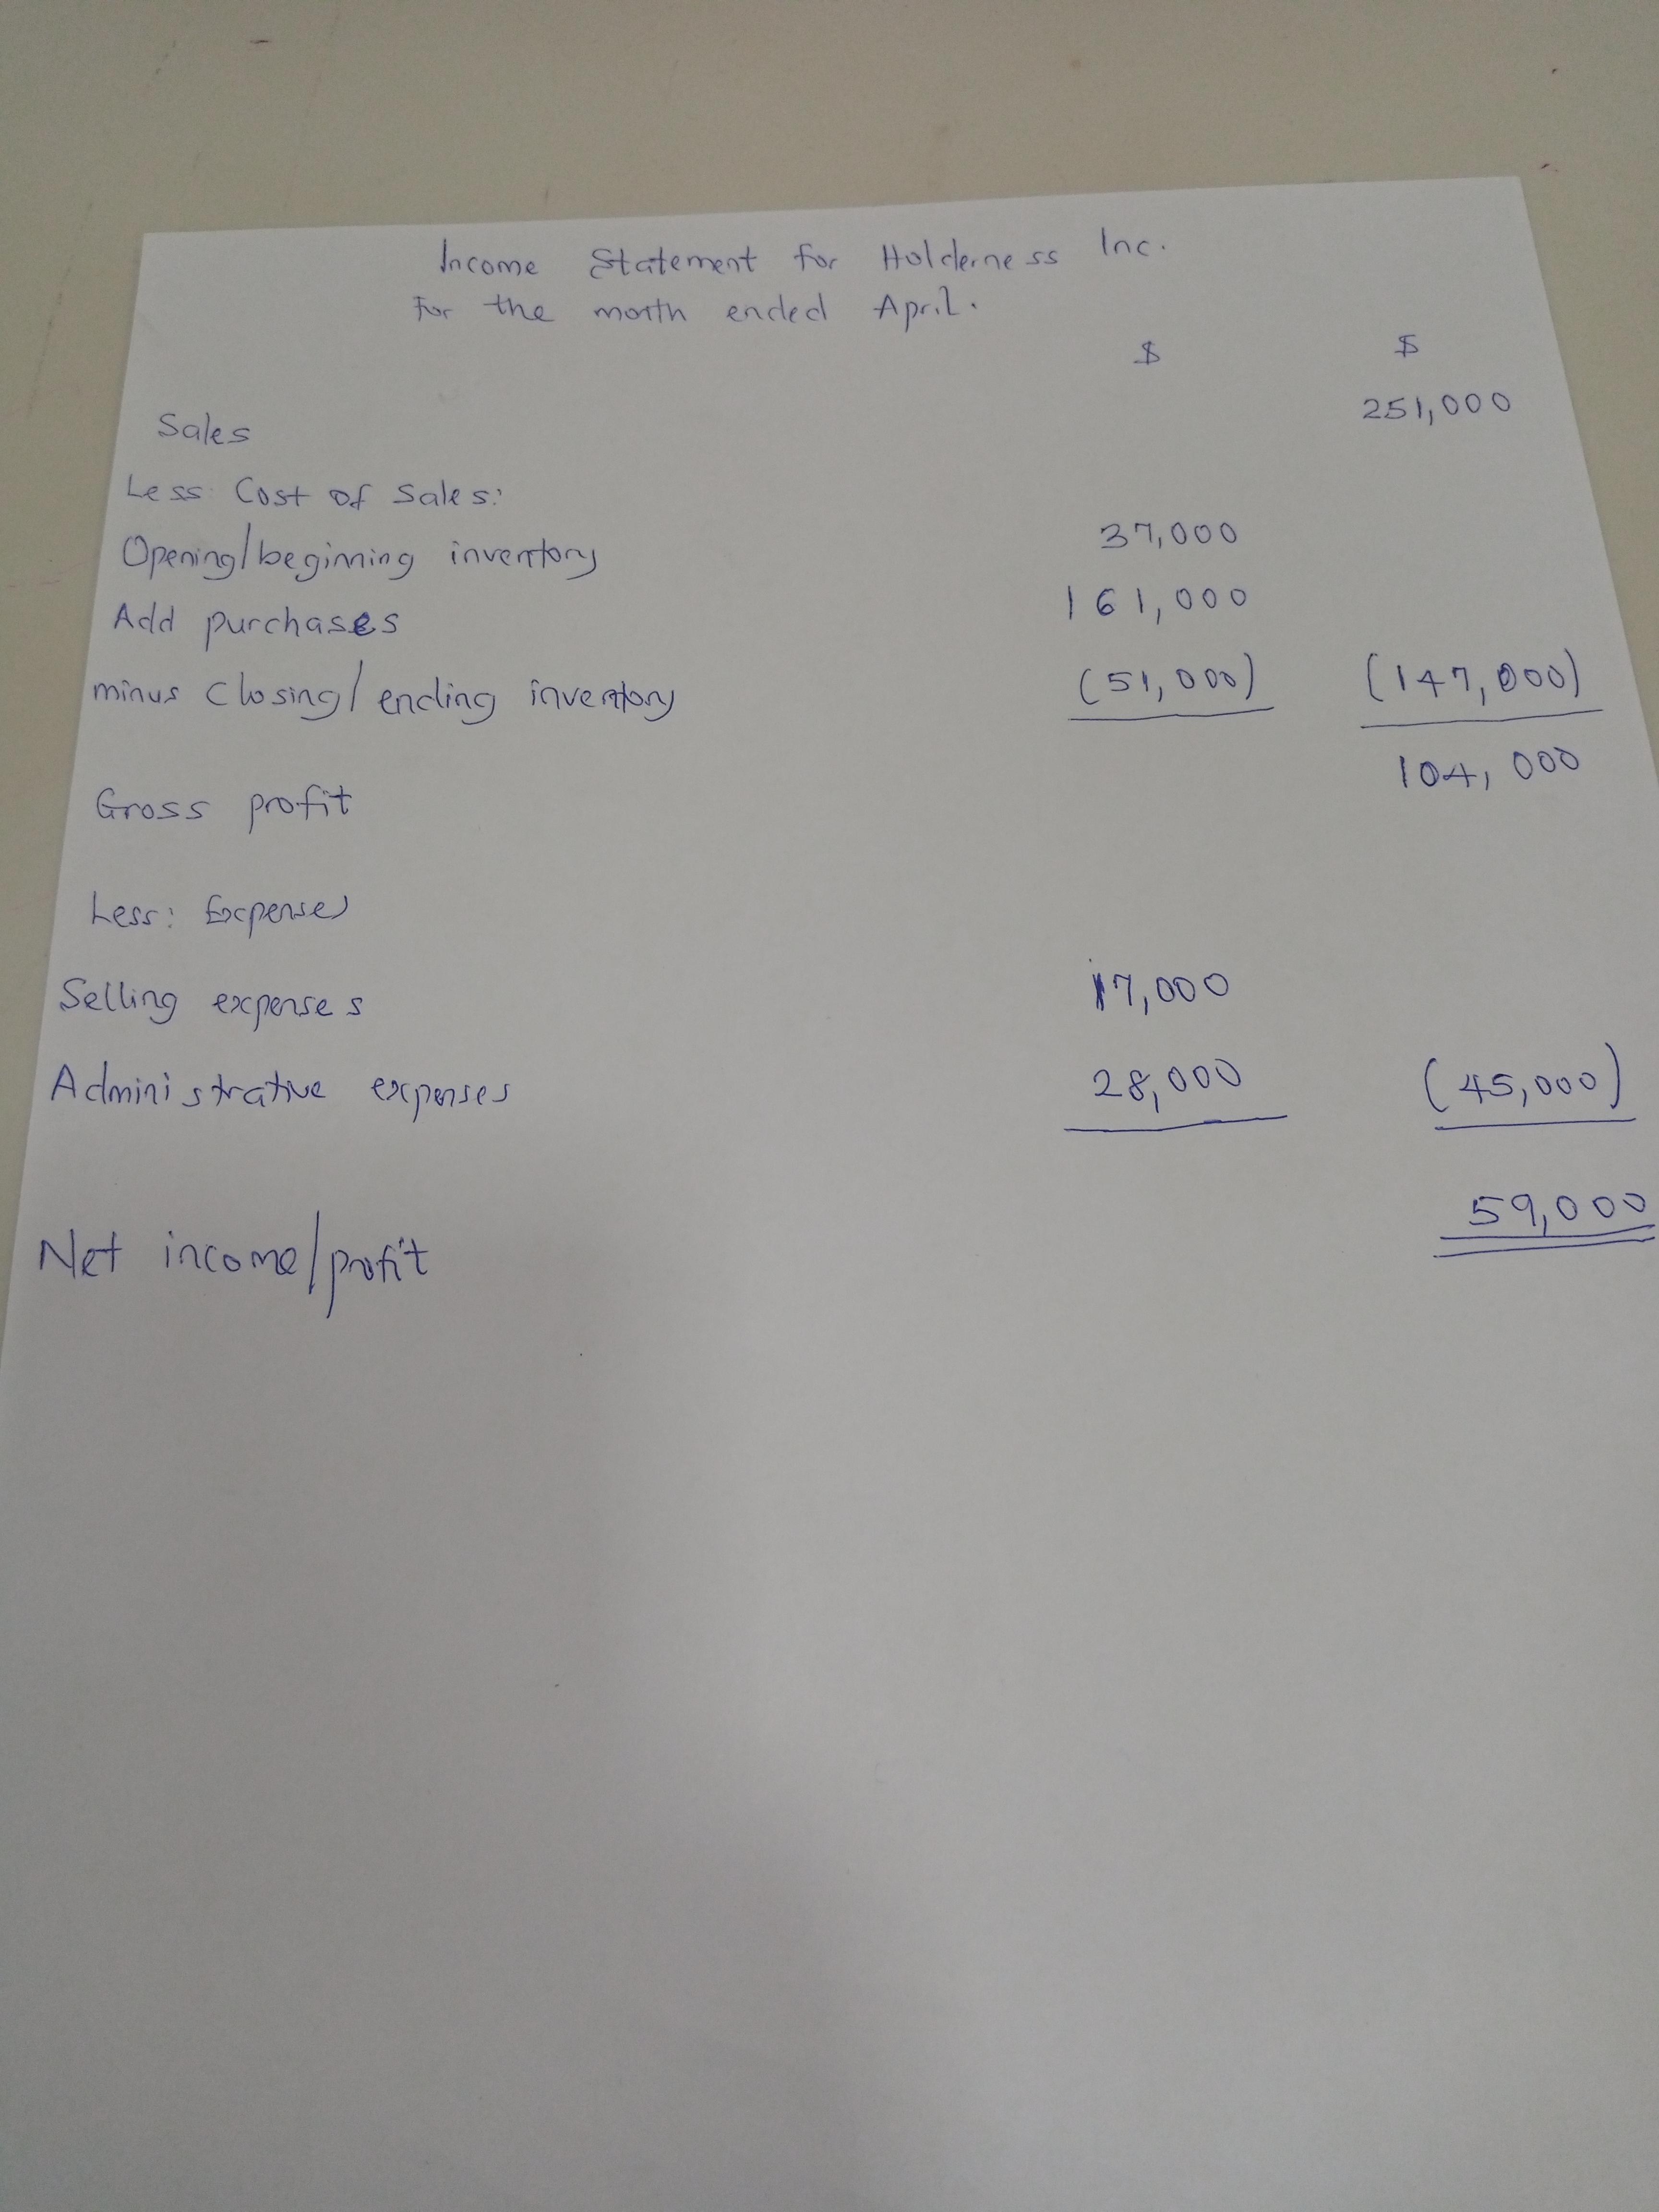 Income Statement for Holderness Inc.
For the month ended April.
$ $
Sales 251,000
Less Cost of Sales:
Opening/beginning inventory 37,000
Add purchases 161,000
minus closing/ending inventory (51,000) (147,000)
Gross profit 104,000
Less: Expenses
Selling expenses 17,000
Administrative expenses 28,000 (45,000)
Net income/profit 59,000